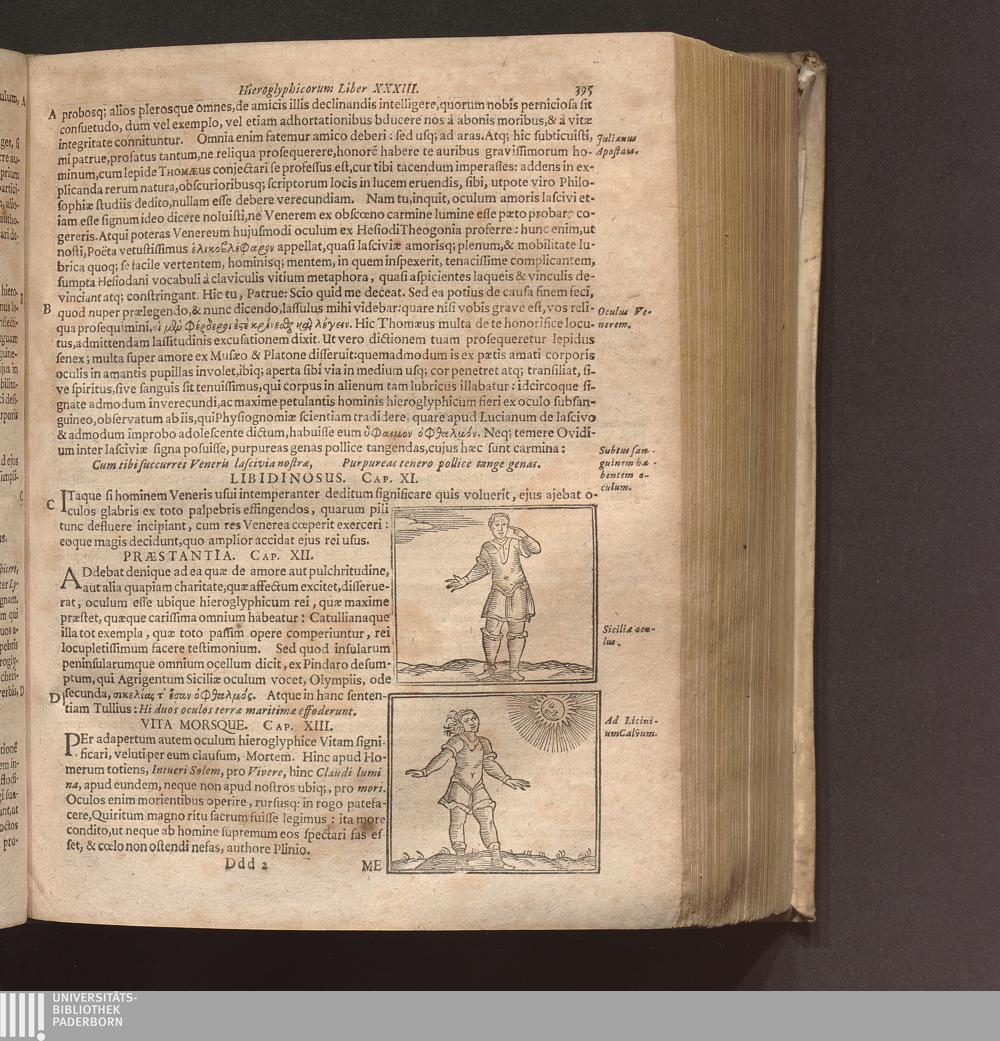 Hieroglyphicorum Liber XXXIII. 395
A probosq; alios plerosque omnes, de amicis illis declinandis intelligere, quorum nobis perniciosa sit
consuetudo, dum vel exemplo, vel etiam adhortationibus bducere nos à bonis moribus, & à vitæ
integritate connituntur. Omnia enim fatemur amico deberi: sed usq; ad aras. Atq; hic subticuisti,
mi patrue, profatus tantum, ne reliqua prosequerere, honorē habere te auribus gravissimorum ho-
minum, cum lepide THOMÆUS conjectari se professus est, cur tibi tacendum imperasses: addens in ex-
plicanda rerum natura, obscurioribusq; scriptorum locis in lucem eruendis, sibi, utpote viro Philo-
sophiæ studiis dedito, nullam esse debere verecundiam. Nam tu, inquit, oculum amoris lascivi et-
iam esse signum ideo dicere noluisti, ne Venerem ex obscœno carmine lumine esse pæto probare co-
gereris. Atqui poteras Venereum hujusmodi oculum ex Hesiodi Theogonia proferre: hunc enim, ut
nosti, Poëta vetustissimus ἑλικοβλέφαρον appellat, quasi lasciviæ amorisq; plenum, & mobilitate lu-
brica quoq; se facile vertentem, hominisq; mentem, in quem inspexerit, tenacissime complicantem,
sumpta Hesiodani vocabuli à claviculis vitium metaphora, quasi aspicientes laqueis & vinculis de-
vinciant atq; constringant. Hic tu, Patrue: Scio quid me deceat. Sed ea potius de causa finem feci,
B quod nuper prælegendo, & nunc dicendo, lassulus mihi videbar: quare nisi vobis grave est, vos reli-
qua prosequimini, λέγειν. Hic Thomæus multa de te honorifice locu-
tus, admittendam lassitudinis excusationem dixit. Ut vero dictionem tuam prosequeretur lepidus
senex; multa super amore ex Musæo & Platone disseruit: quemadmodum is ex pætis amati corporis
oculis in amantis pupillas involet, ibiq; aperta sibi via in medium usq; cor penetret atq; transiliat, si-
ve spiritus, sive sanguis sit tenuissimus, qui corpus in alienum tam lubricus illabatur: idcircoque si-
gnate admodum inverecundi, ac maxime petulantis hominis hieroglyphicum fieri ex oculo subsan-
guineo, observatum ab iis, qui Physiognomiæ scientiam tradidere, quare apud Lucianum de lascivo
& admodum improbo adolescente dictum, habuisse eum ὕφαιμον ὀφθαλμόν. Neq; temere Ovidi-
um inter lasciviæ signa posuisse, purpureas genas pollice tangendas, cujus hæc sunt carmina:
Cum tibi succurret Veneris lascivia nostræ, Purpureas tenero pollice tange genas.
LIBIDINOSUS. CAP. XI.
C ITaque si hominem Veneris usui intemperanter deditum significare quis voluerit, ejus ajebat o-
culos glabris ex toto palpebris effingendos, quarum pili
tunc defluere incipiant, cum res Venerea cœperit exerceri:
eoque magis decidunt, quo amplior accidat ejus rei usus.
PRÆSTANTIA. CAP. XII.
ADdebat denique ad ea quæ de amore aut pulchritudine,
aut alia quapiam charitate, quæ affectum excitet, disserue-
rat, oculum esse ubique hieroglyphicum rei, quæ maxime
præstet, quæque carissima omnium habeatur: Catullianaque
illa tot exempla, quæ toto passim opere comperiuntur, rei
locupletissimum facere testimonium. Sed quod insularum
peninsularumque omnium ocellum dicit, ex Pindaro desum-
ptum, qui Agrigentum Siciliæ oculum vocet, Olympiis, ode
D secunda, σικελίας τ' ἔσαν ὀφθαλμός. Atque in hanc senten-
tiam Tullius: Hi duos oculos terræ maritimæ effoderunt.
VITA MORSQUE. CAP. XIII.
PEr adapertum autem oculum hieroglyphice Vitam signi-
ficari, veluti per eum clausum, Mortem. Hinc apud Ho-
merum totiens, Intueri Solem, pro Vivere, hinc Claudi lumi
na, apud eundem, neque non apud nostros ubiq;, pro mori.
Oculos enim morientibus operire, rursusq: in rogo patefa-
cere, Quiritum magno ritu sacrum fuisse legimus: ita more
condito, ut neque ab homine supremum eos spectari fas es
set, & cœlo non ostendi nefas, authore Plinio.
Ddd 2 ME
Julianus
Apostata.
Oculus Ve-
nerem.
Subtus san-
guinem ha-
bentem o-
culum.
Siciliæ ocu-
lus.
Ad Licini-
um Calvum.
UNIVERSITÄTS-
BIBLIOTHEK
PADERBORN